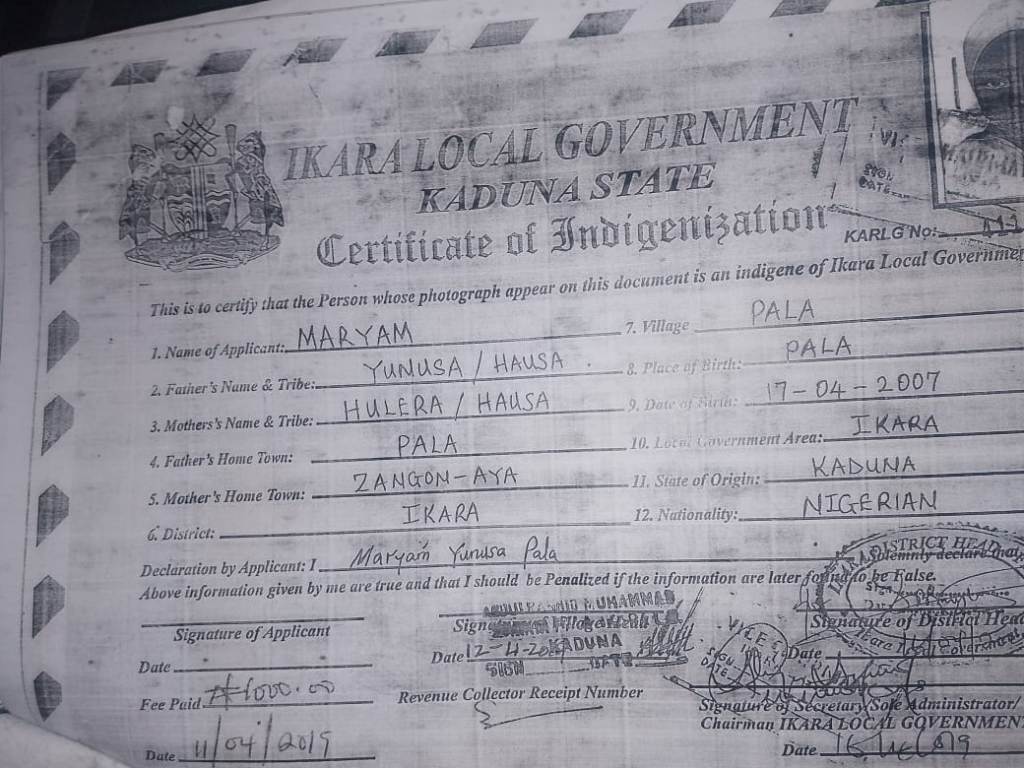 IKARA LOCAL GOVERNMENT
KADUNA STATE
Certificate of Indigenization
SIGN
DATE
KARLG No:
This is to certify that the Person whose photograph appear on this document is an indigene of Ikara Local
1. Name of Applicant: MARYAM
2. Father's Name & Tribe: YUNUSA / HAUSA
3. Mothers's Name & Tribe: HULERA / HAUSA
4. Father's Home Town: PALA
5. Mother's Home Town: ZANGON-AYA
6. District: IKARA
7. Village PALA
8. Place of Birth: PALA
9. Date of Birth: 17-04-2007
10. Local Government Area: IKARA
11. State of Origin: KADUNA
12. Nationality: NIGERIAN
Declaration by Applicant: I Maryam Yunusa Pala Solemnly declare that
Above information given by me are true and that I should be Penalized if the information are later found to be False.
DISTRICT HEAD
Signature of Applicant
Date
Fee Paid ₦1000.00
Date 11/04/2019
MUHAMMAD
KADUNA
SIGN DATE
Date 12-4-
Revenue Collector Receipt Number
Signature of District Head
Date
Signature of Secretary/Sole Administrator/
Chairman IKARA LOCAL GOVERNMENT
Date